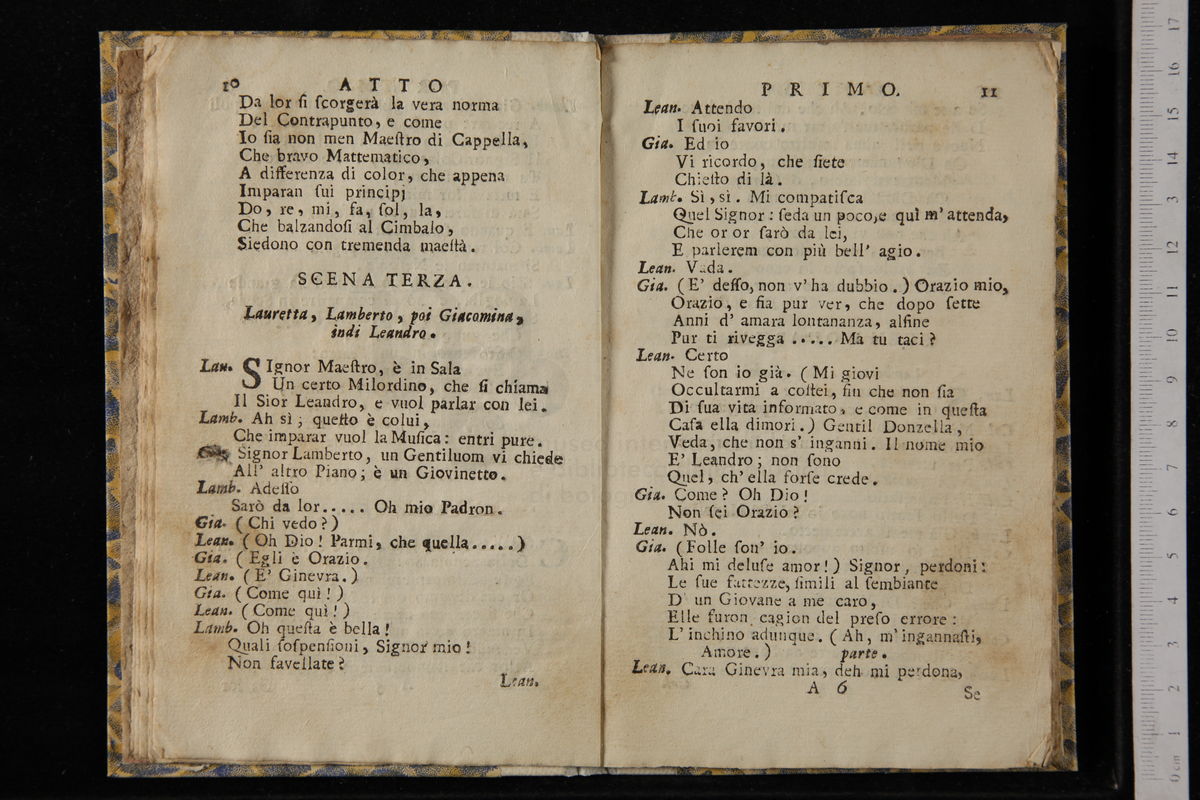 10 ATTO
Da lor ſi ſcorgerà la vera norma
Del Contrapunto, e come
Io ſia non men Maeſtro di Cappella,
Che bravo Mattematico,
A differenza di color, che appena
Imparan ſui principj
Do, re, mi, fa, ſol, la,
Che balzandoſi al Cimbalo,
Siedono con tremenda maeſtà.
SCENA TERZA.
Lauretta, Lamberto, poi Giacomina,
indi Leandro.
Lau. SIgnor Maeſtro, è in Sala
Un certo Milordino, che ſi chiama
Il Sior Leandro, e vuol parlar con lei.
Lamb. Ah sì; queſto è colui,
Che imparar vuol la Muſica: entri pure.
Signor Lamberto, un Gentiluom vi chiede
All' altro Piano; è un Giovinetto.
Lamb. Adeſſo
Sarò da lor..... Oh mio Padron.
Gia. (Chi vedo?)
Lean. (Oh Dio! Parmi, che quella.....)
Gia. (Egli è Orazio.
Lean. (E' Ginevra.)
Gia. (Come quì!)
Lean. (Come quì!)
Lamb. Oh queſta è bella!
Quali ſoſpenſioni, Signor mio!
Non favellate?
Lean.
PRIMO. 11
Lean. Attendo
I ſuoi favori.
Gia. Ed io
Vi ricordo, che ſiete
Chieſto di là.
Lamb. Sì, sì. Mi compatiſca
Quel Signor: ſeda un poco, e quì m'attenda,
Che or or ſarò da lei,
E parlerem con più bell' agio.
Lean. Vada.
Gia. (E' deſſo, non v'ha dubbio.) Orazio mio,
Orazio, e ſia pur ver, che dopo ſette
Anni d' amara lontananza, alfine
Pur ti rivegga ..... Ma tu taci?
Lean. Certo
Ne ſon io già. (Mi giovi
Occultarmi a coſtei, fin che non ſia
Di ſua vita informato, e come in queſta
Caſa ella dimori.) Gentil Donzella,
Veda, che non s' inganni. Il nome mio
E' Leandro; non ſono
Quel, ch' ella forſe crede.
Gia. Come? Oh Dio!
Non ſei Orazio?
Lean. Nò.
Gia. (Folle ſon' io.
Ahi mi deluſe amor!) Signor, perdoni:
Le ſue fattezze, ſimili al ſembiante
D' un Giovane a me caro,
Elle furon cagion del preſo errore:
L' inchino adunque. (Ah, m'ingannaſti,
Amore.) parte.
Lean. Cara Ginevra mia, deh mi perdona,
A 6 Se